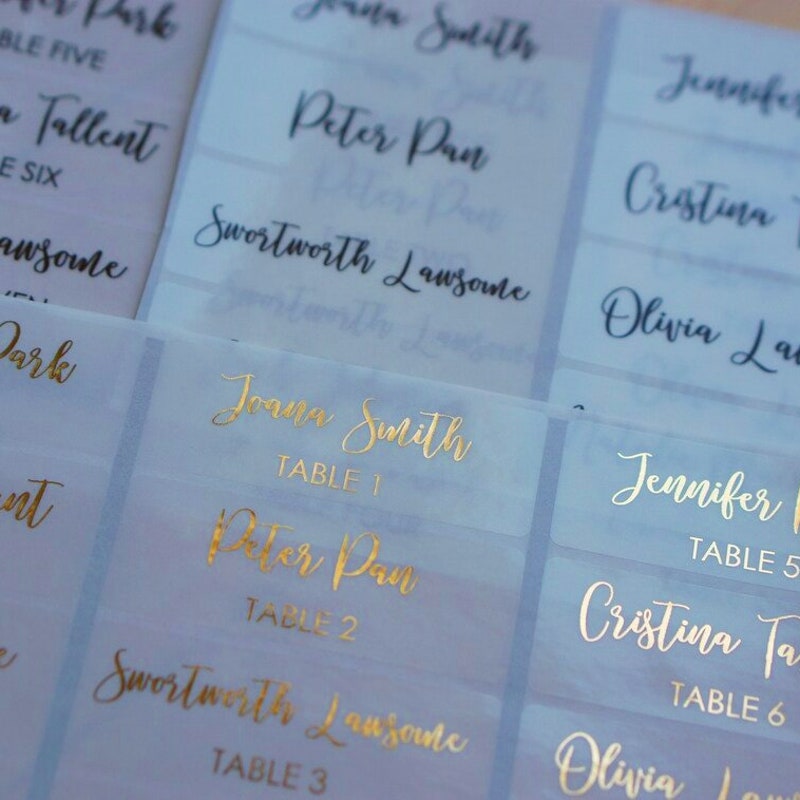 Park
BLE FIVE
a Tallent
E SIX
awsome
Joana Smith
Peter Pan
Swortworth Lawsome
Jennifer
Cristina
Olivia
Park
Joana Smith
TABLE 1
Peter Pan
TABLE 2
Swortworth Lawsome
TABLE 3
Jennifer
TABLE 5
Cristina Ta
TABLE 6
Olivia